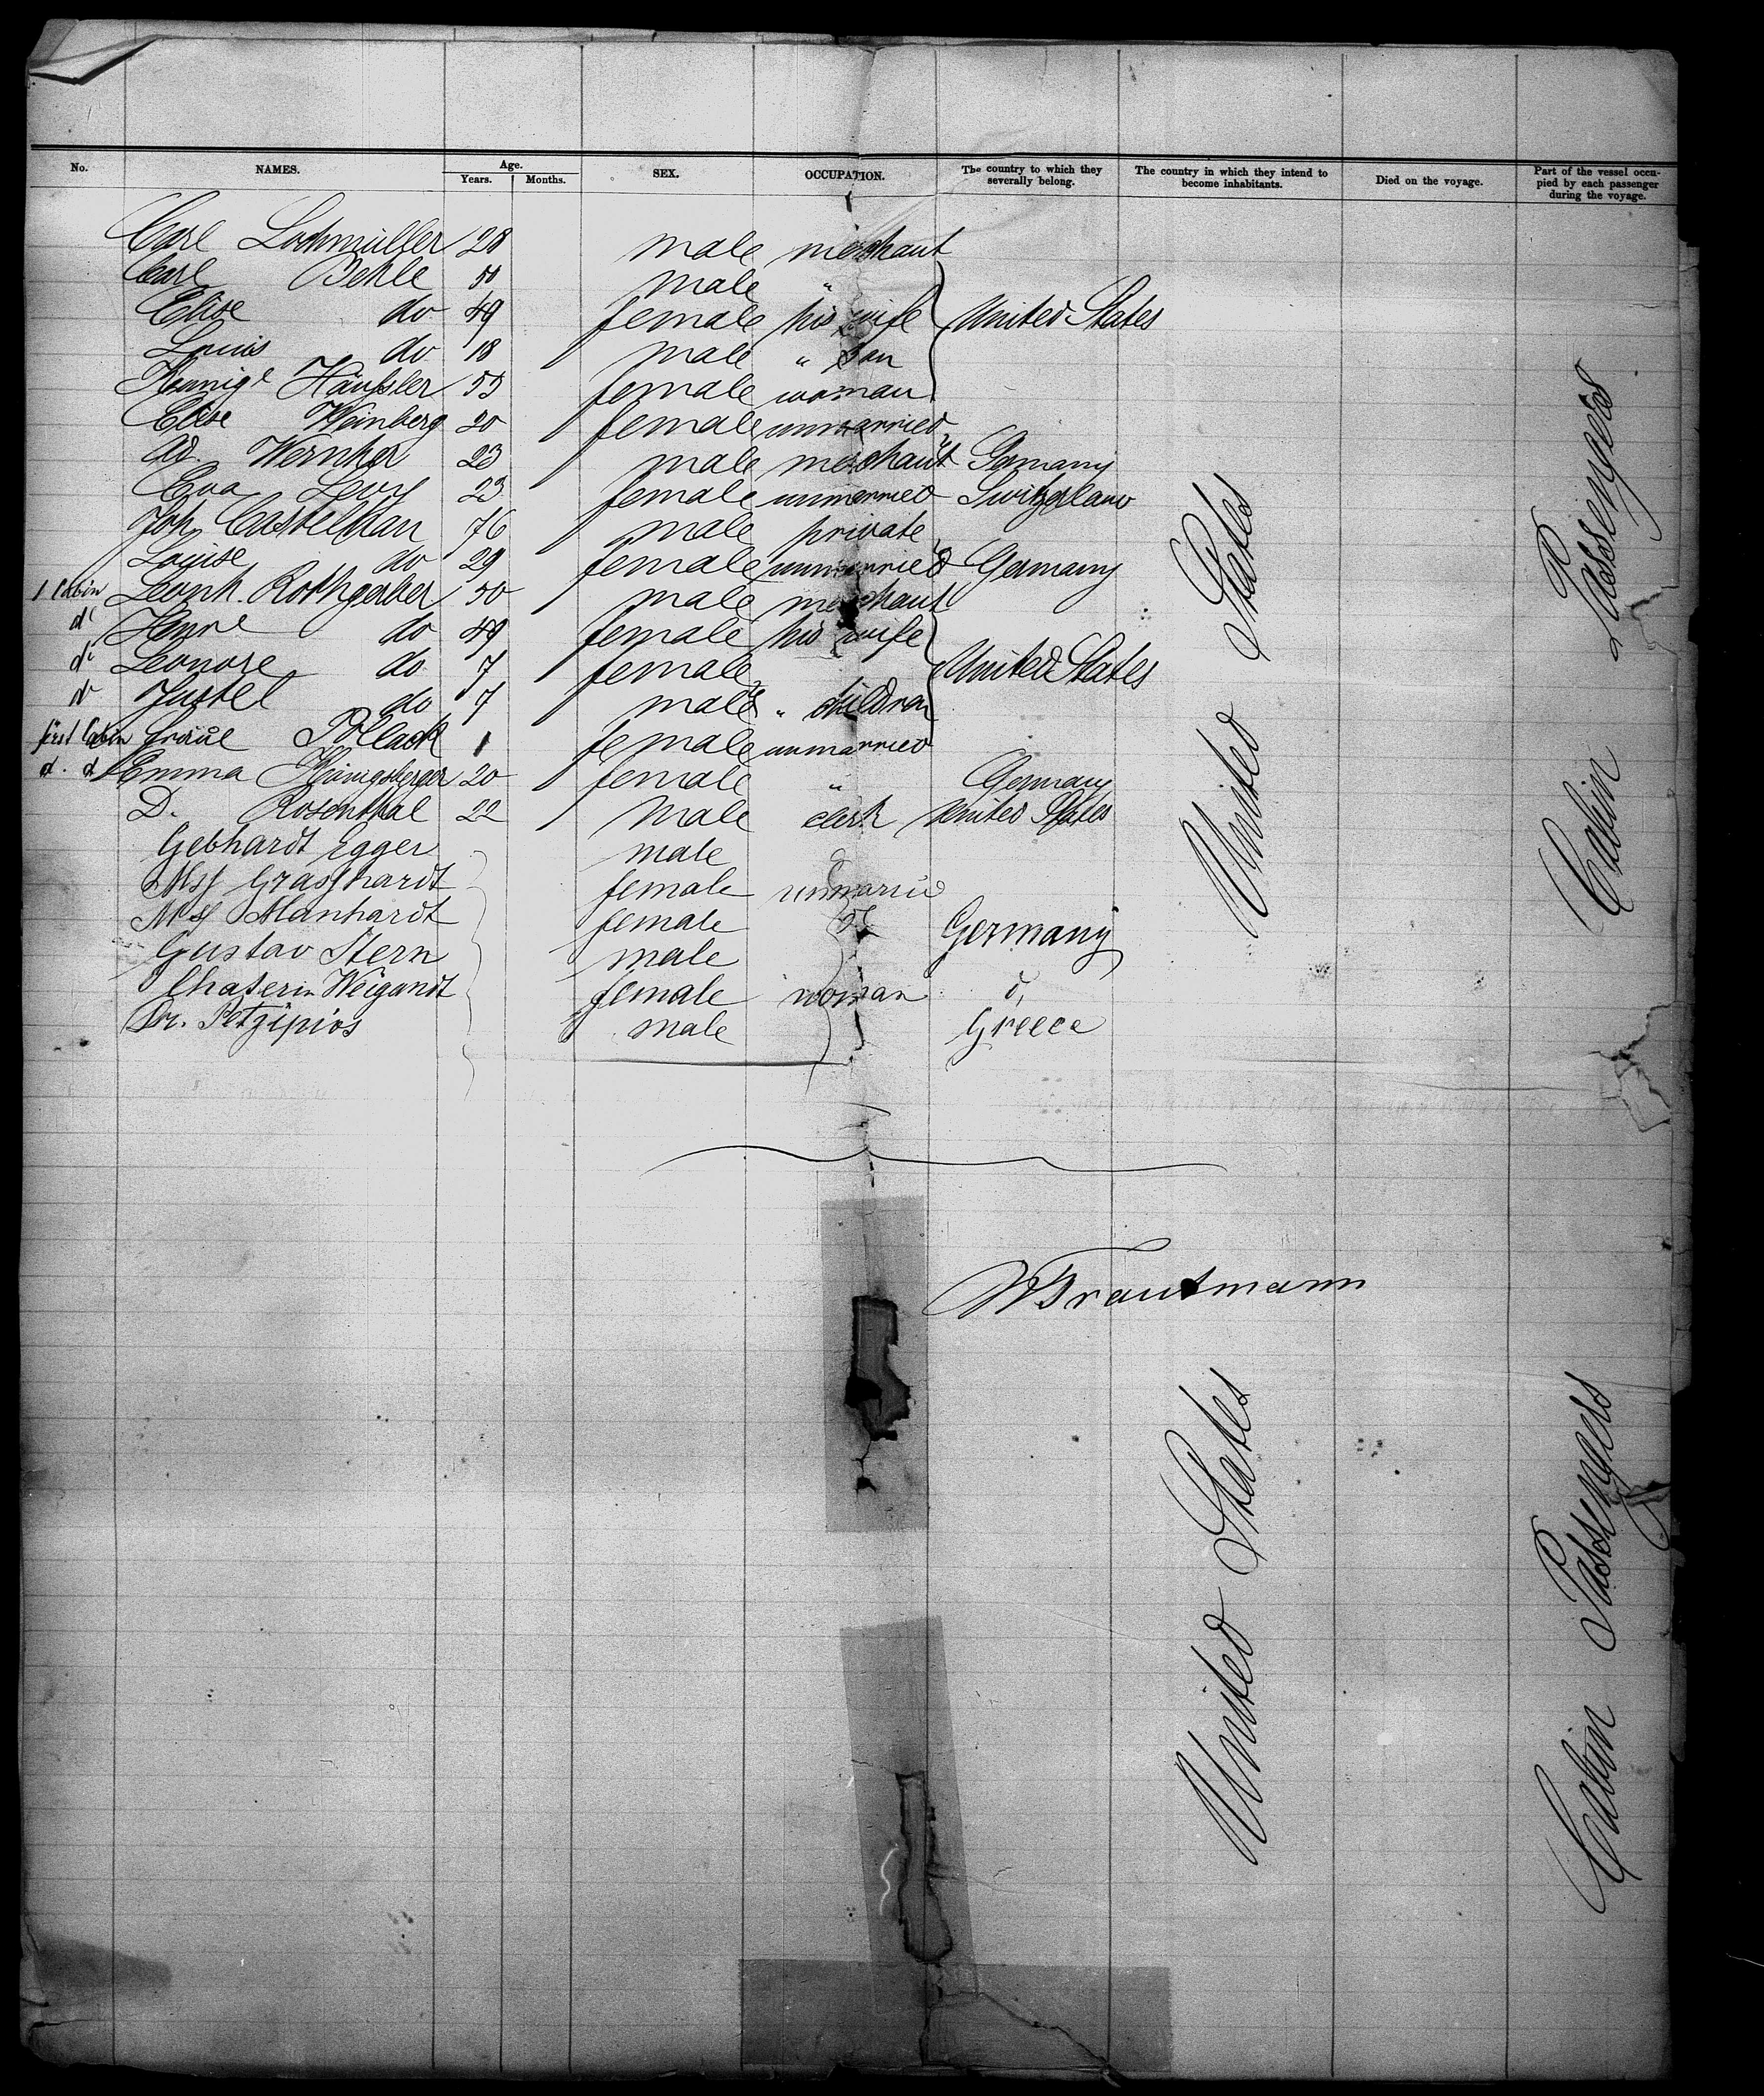 No. NAMES. Age. Years. Months. SEX. OCCUPATION. The country to which they severally belong. The country in which they intend to become inhabitants. Died on the voyage. Part of the vessel occupied by each passenger during the voyage.
Carl Lochmüller 28 male merchant
Carl Behle 51 male "
Elise do 49 female his wife United States
Louis do 18 male " son
Häußler 55 female woman
Elise Weinberg 20 female unmarried
Ad. Wernher 23 male merchant Germany
Eva Levy 23 female unmarried Switzerland
Joh. Castelhan 76 male private
Louise do 29 female unmarried Germany
1 Cabin Leonh. Rothgerber 50 male merchant
do do 49 female his wife
do Leonore do 7 female United States
do Justel do 7 male " children
first Cabin Pollack female unmarried
d. d Emma Königsberger 20 female " Germany
D. Rosenthal 22 male clerk United States
Gebhardt Egger male
Grashardt female unmarried
Manhardt female d Germany
Gustav Stern male
Chaterin Weigandt female woman d,
Dr. Petzipios male Greece
United States
Cabin Passengers
Trautmann
United States
Cabin Passengers